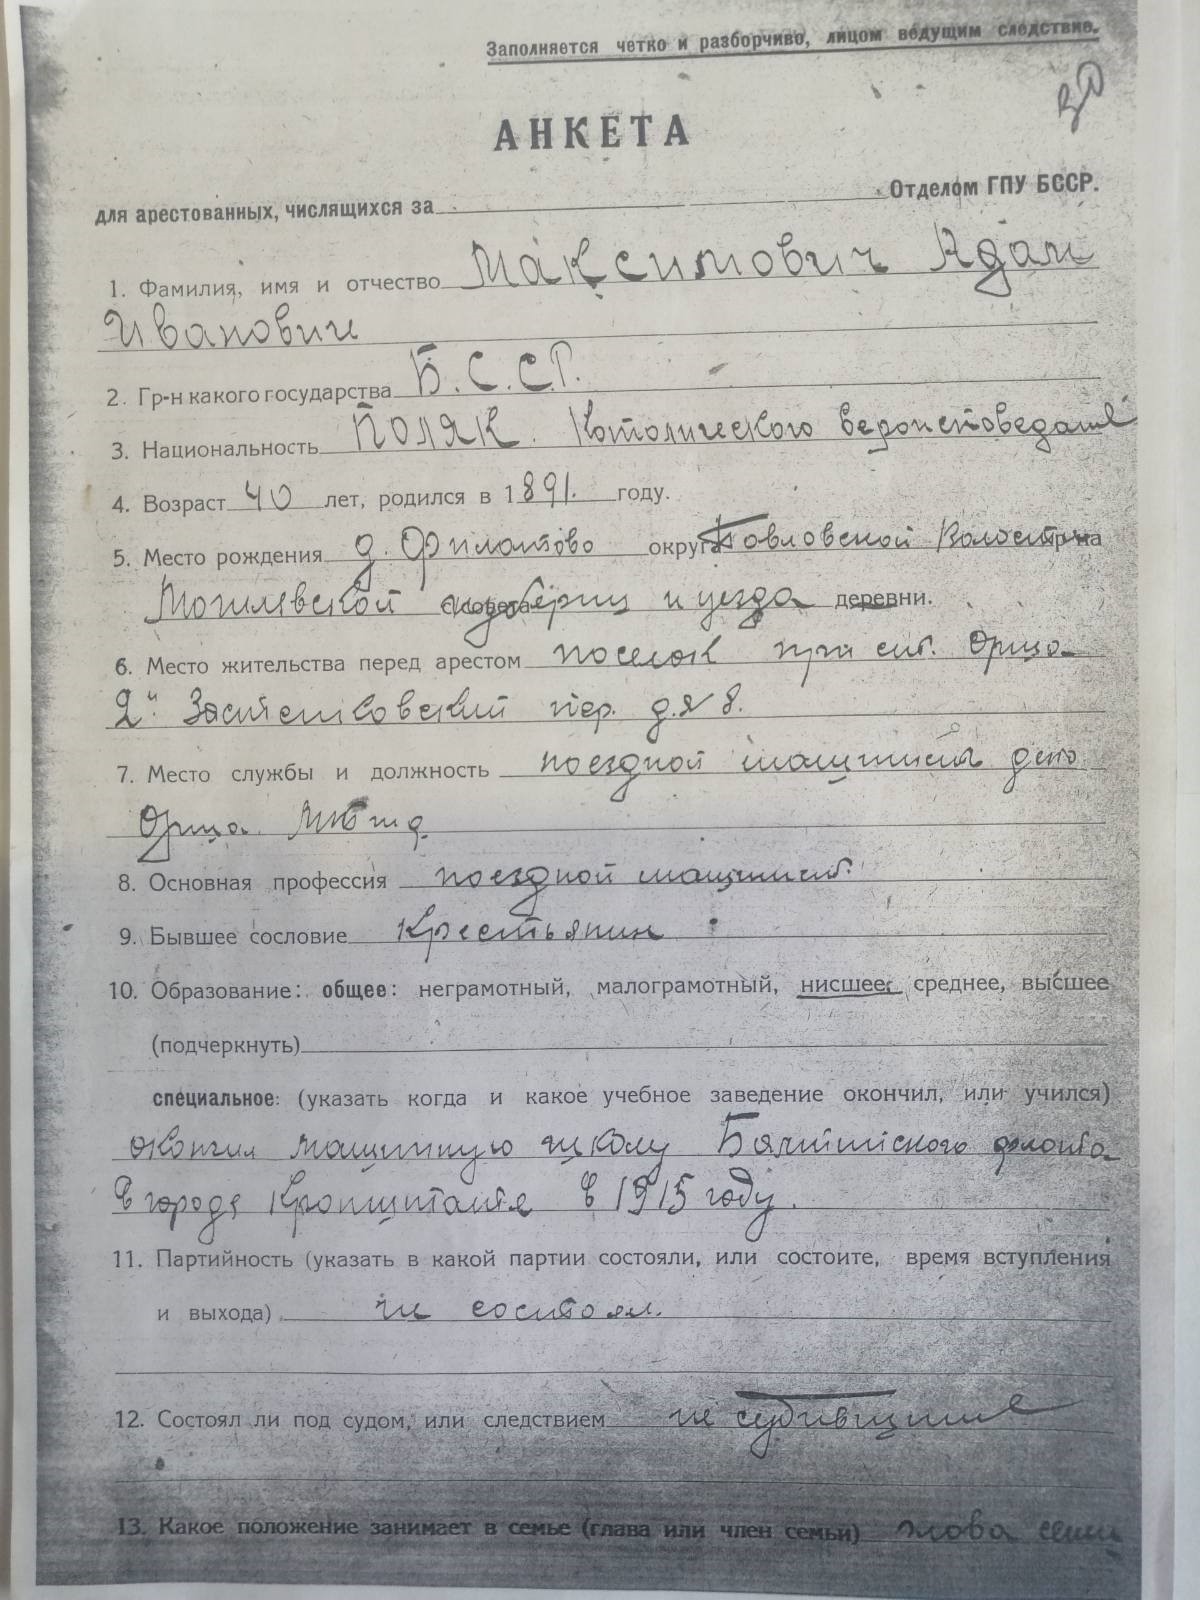 Заполняется четко и разборчиво, лицом ведущим следствие.
АНКЕТА
для арестованных, числящихся за Отделом ГПУ БССР.
1. Фамилия, имя и отчество Максимович Адам
Иванович
2. Гр-н какого государства Б.С.С.Р.
3. Национальность Поляк. Католического вероисповедание
4. Возраст 40 лет, родился в 1891. году.
5. Место рождения д. Филатово округ Павловской Волости
Могилевской губернии и уезда деревни.
6. Место жительства перед арестом поселок при ст. Орша
2й Застенковский пер. д. № 8.
7. Место службы и должность поездной машинист депо
Орша МББжд
8. Основная профессия поездной машинист.
9. Бывшее сословие Крестьянин
10. Образование: общее: неграмотный, малограмотный, нисшее, среднее, высшее
(подчеркнуть)
специальное: (указать когда и какое учебное заведение окончил, или учился)
окончил машинную школу Балтийского флота
в городе Кронштанте в 1915 году.
11. Партийность (указать в какой партии состояли, или состоите, время вступления
и выхода) не состоял.
12. Состоял ли под судом, или следствием не судившийся
13. Какое положение занимает в семье (глава или член семьи) глова семи